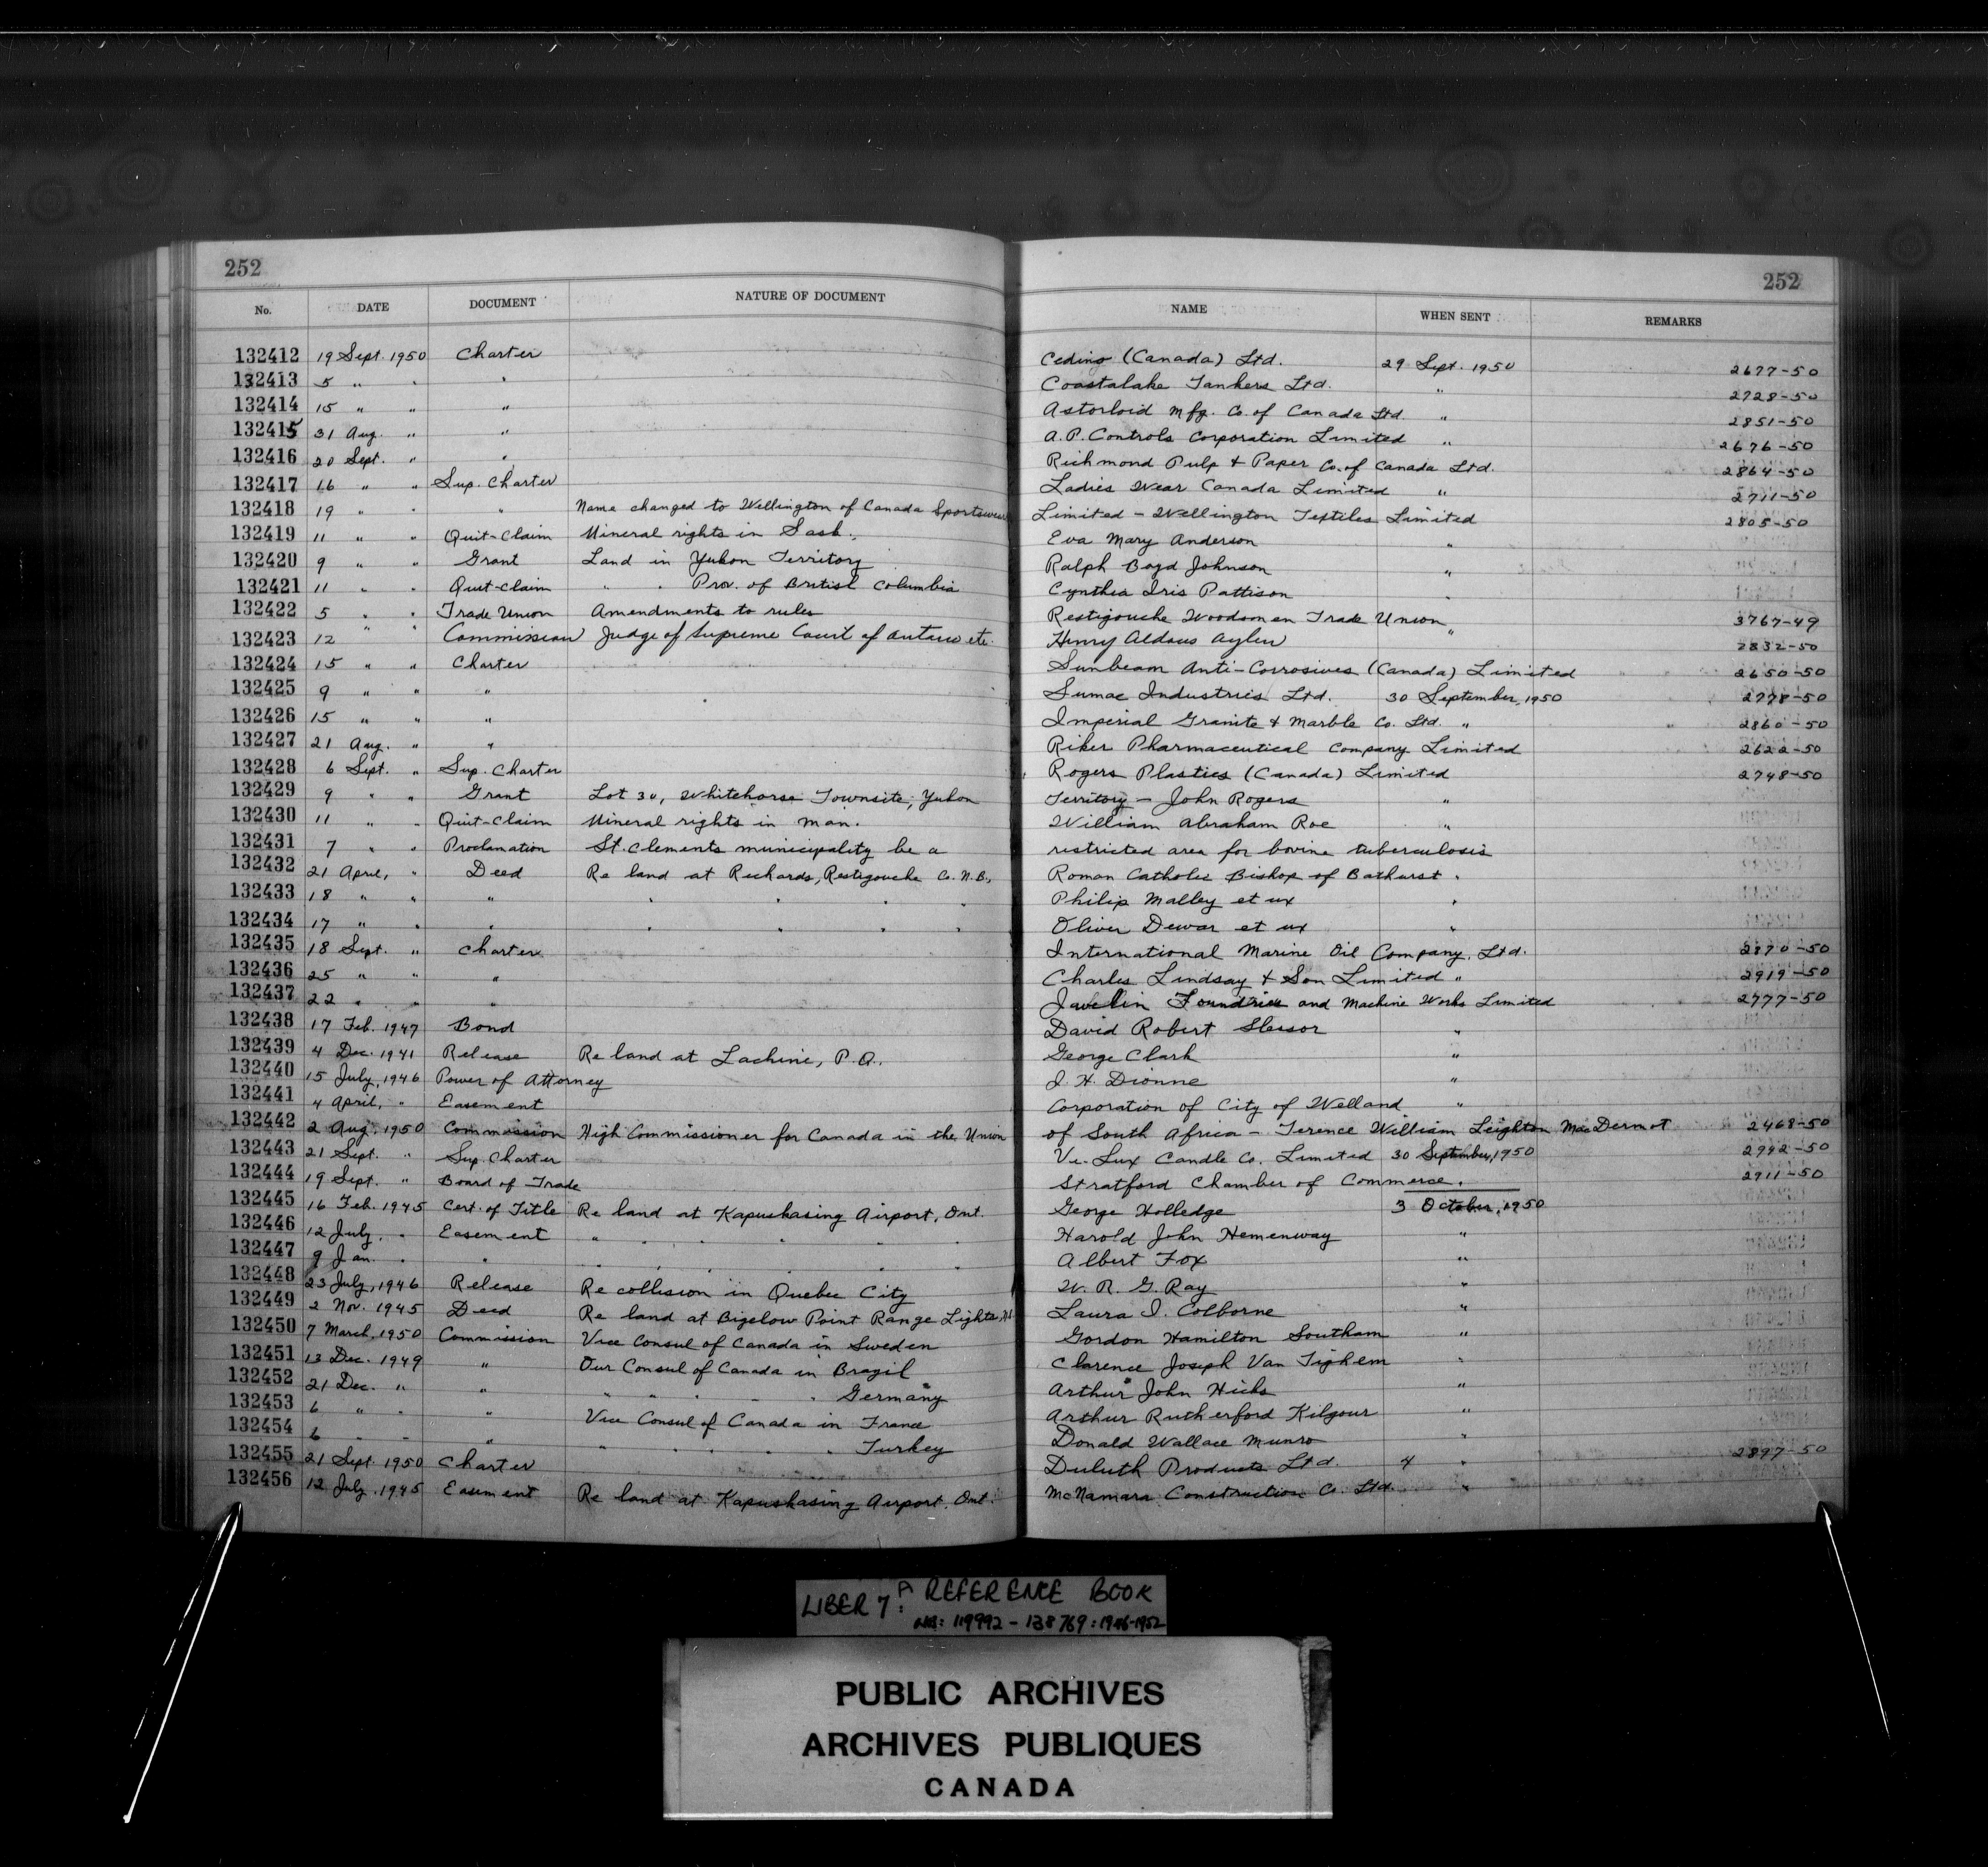 252 252
No. DATE DOCUMENT NATURE OF DOCUMENT NAME WHEN SENT REMARKS
132412 19 Sept. 1950 Charter Ceding (Canada) Ltd. 29 Sept. 1950 2677-50
132413 5 " " " Coastalake Tankers Ltd. " 2728-50
132414 15 " " " Astorloid Mfg. Co. of Canada Ltd. " 2851-50
132415 31 Aug. " " A.P. Controls Corporation Limited " 2676-50
132416 20 Sept. " " Richmond Pulp & Paper Co. of Canada Ltd. 2864-50
132417 16 " " Sup. Charter Ladies Wear Canada Limited " 2711-50
132418 19 " " " Name changed to Wellington of Canada Sportswear Limited - Wellington Textiles Limited 2805-50
132419 11 " " Quit-Claim Mineral rights in Sask. Eva Mary Anderson "
132420 9 " " Grant Land in Yukon Territory Ralph Boyd Johnson "
132421 11 " " Quit-Claim " " Prov. of British Columbia Cynthia Iris Pattison "
132422 5 " " Trade Union Amendments to rules Restigouche Woodsmen Trade Union 3767-49
132423 12 " " Commission Judge of Supreme Court of Ontario etc. Henry Aldous Aylen " 2832-50
132424 15 " " Charter Sunbeam Anti-Corrosives (Canada) Limited 2650-50
132425 9 " " " Sumac Industries Ltd. 30 September, 1950 2778-50
132426 15 " " " Imperial Granite & Marble Co. Ltd. " 2860-50
132427 21 Aug. " " Riker Pharmaceutical Company Limited 2622-50
132428 6 Sept. " Sup. Charter Rogers Plastics (Canada) Limited 2748-50
132429 9 " " Grant Lot 30, Whitehorse Townsite, Yukon Territory - John Rogers "
132430 11 " " Quit-Claim Mineral rights in Man. William Abraham Roe "
132431 7 " " Proclamation St. Clements municipality be a restricted area for bovine tuberculosis
132432 21 April, " Deed Re land at Richards, Restigouche Co. N.B., Roman Catholic Bishop of Bathurst "
132433 18 " " " " " " " Philip Malley et ux "
132434 17 " " " " " " " Oliver Dewar et ux "
132435 18 Sept. " Charter International Marine Oil Company, Ltd. 2870-50
132436 25 " " " Charles Lindsay & Son Limited " 2919-50
132437 22 " " " Javelin Foundries and Machine Works Limited 2777-50
132438 17 Feb. 1947 Bond David Robert "
132439 4 Dec. 1941 Release Re land at Lachine, P.Q. George Clark "
132440 15 July, 1946 Power of Attorney J. H. Dionne "
132441 4 April, " Easement Corporation of City of Welland "
132442 2 Aug. 1950 Commission High Commissioner for Canada in the Union of South Africa - Terence William Leighton MacDermot 2468-50
132443 21 Sept. " Sup. Charter Vi-Lux Candle Co. Limited 30 September, 1950 2942-50
132444 19 Sept. " Board of Trade Stratford Chamber of Commerce. 2911-50
132445 16 Feb. 1945 Cert. of Title Re land at Kapuskasing Airport, Ont. George Holledge 3 October, 1950
132446 12 July, " Easement " " " " " Harold John Hemenway "
132447 9 Jan. " " " " " " " Albert Fox "
132448 23 July, 1946 Release Re collision in Quebec City W. R. G. Ray "
132449 2 Nov. 1945 Deed Re land at Bigelow Point Range Lights, Laura I. Colborne "
132450 7 March, 1950 Commission Vice Consul of Canada in Sweden Gordon Hamilton Southam "
132451 13 Dec. 1949 " Our Consul of Canada in Brazil Clarence Joseph Van Tighem "
132452 21 Dec. " " " " " " " Germany Arthur John Hicks "
132453 6 " " " Vice Consul of Canada in France Arthur Rutherford Kilgour "
132454 6 " " " " " " " " Turkey Donald Wallace Munro "
132455 21 Sept. 1950 Charter Duluth Products Ltd. 4 " 2897-50
132456 12 July, 1945 Easement Re land at Kapuskasing Airport, Ont. McNamara Construction Co. Ltd. "
LIBER 7A: REFERENCE BOOK
NOS: 119992 - 138769: 1946-1952
PUBLIC ARCHIVES
ARCHIVES PUBLIQUES
CANADA